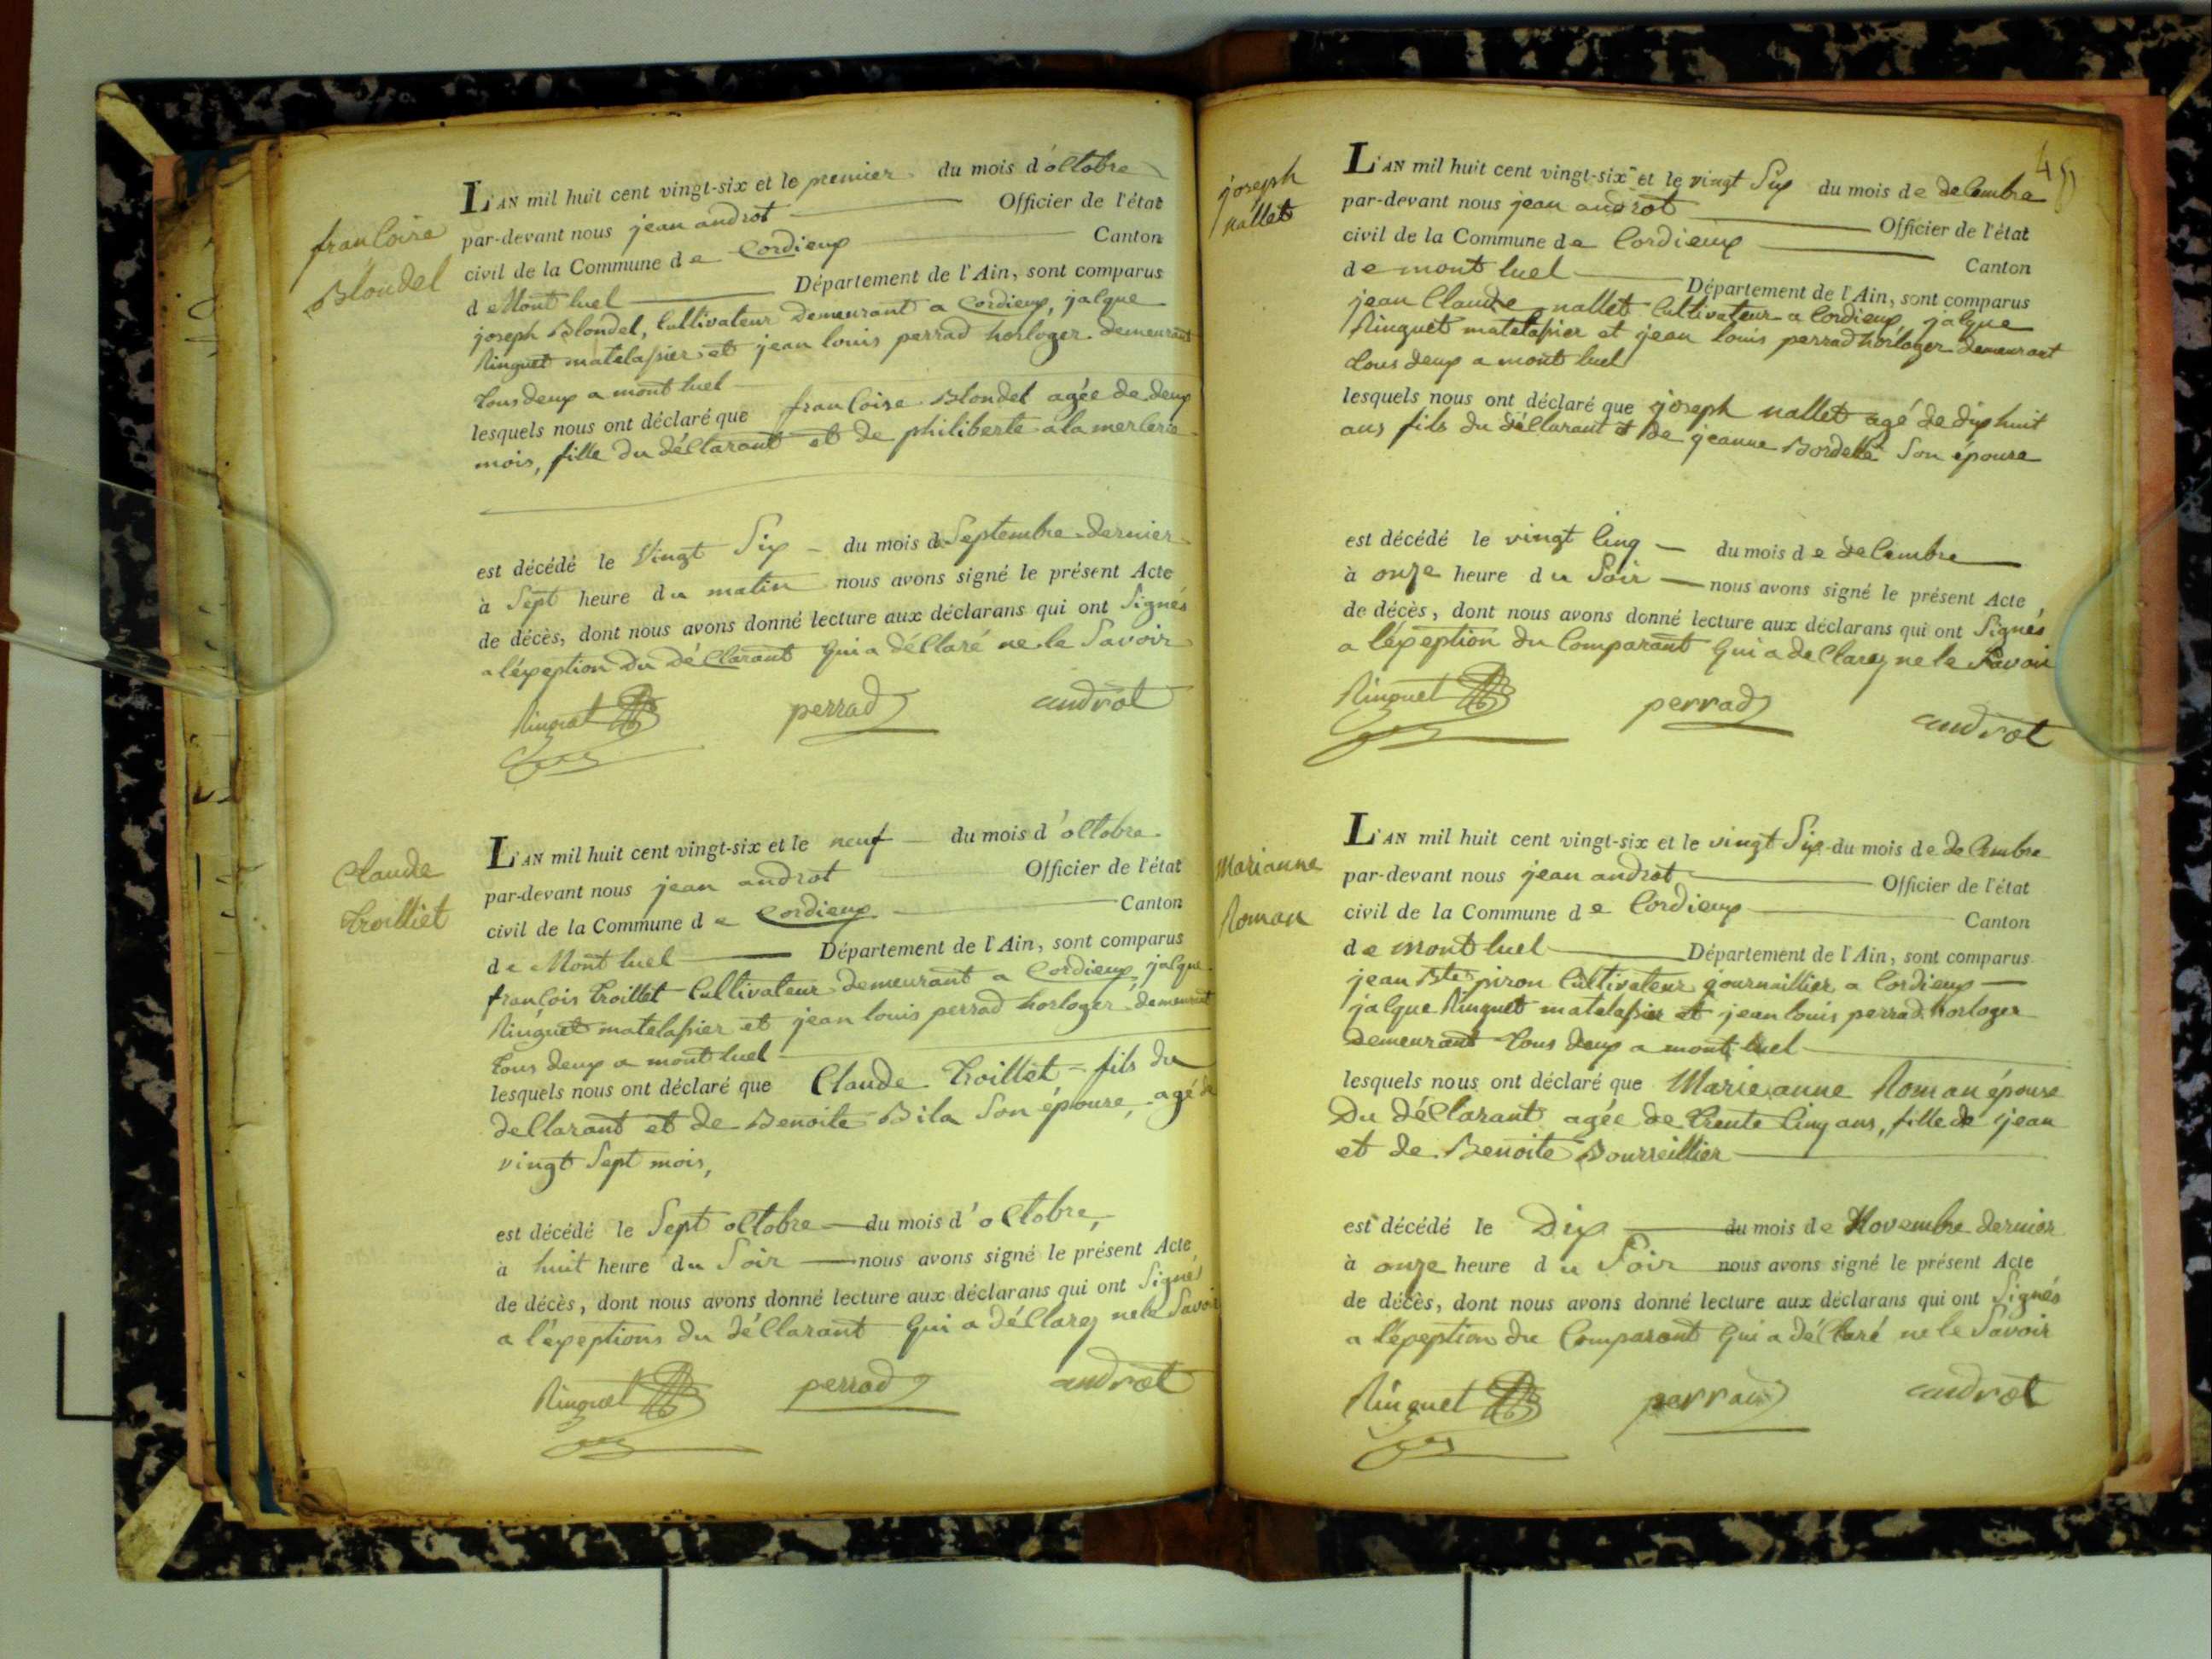 françoise
Blondel
L'AN mil huit cent vingt-six et le premier du mois d'octobre
par-devant nous jean androt Officier de l'état
civil de la Commune de Cordieux Canton
de Mont luel Département de l'Ain, sont comparus
joseph Blondel, Cultivateur Demeurant a Cordieux, jacque
Ringuet matelassier et jean louis perrad horloger demeurant
tous deux a mont luel
lesquels nous ont déclaré que françoise Blondel agée de deux
mois, fille du déclarant et de philiberte alamercerie
est décédé le Vingt Six du mois de Septembre dernier
à Sept heure du matin nous avons signé le présent Acte
de décès, dont nous avons donné lecture aux déclarans qui ont Signés
a l'éxeption du déclarant qui a déclaré ne le Savoir
Ringuet perrad androt
Claude
troilliet
L'AN mil huit cent vingt-six et le neuf du mois d'octobre
par-devant nous jean androt Officier de l'état
civil de la Commune de Cordieux Canton
de Mont luel Département de l'Ain, sont comparus
françois troillet Cultivateur Demeurant a Cordieux, jacque
Ringuet matelassier et jean louis perrad horloger demeurant
tous deux a mont luel
lesquels nous ont déclaré que Claude troillet fils du
declarant et de Benoite Bila Son épouse, agé de
vingt Sept mois,
est décédé le Sept octobre du mois d'octobre,
à huit heure du Soir nous avons signé le présent Acte
de décès, dont nous avons donné lecture aux déclarans qui ont Signés
a l'éxeptions du déclarant qui a déclarez ne le Savoir
Ringuet perrad androt
joseph
nallet
L'AN mil huit cent vingt-six et le vingt Six du mois de decembre
par-devant nous jean androt Officier de l'état
civil de la Commune de Cordieux Canton
de mont luel Département de l'Ain, sont comparus
jean Claude nallet Cultivateur a Cordieux, jacque
Ringuet matelassier et jean louis perrad horloger demeurant
tous deux a mont luel
lesquels nous ont déclaré que joseph nallet agé de dix huit
ans fils du déclarant et de jeanne Bordelle Son épouse
est décédé le vingt Cinq du mois de decembre
à onze heure du Soir nous avons signé le présent Acte,
de décès, dont nous avons donné lecture aux déclarans qui ont Signés
a l'éxeption du Comparant qui a declarez ne le Savoir
Ringuet perrad androt
Marianne
Roman
L'AN mil huit cent vingt-six et le vingt Six du mois de decembre
par-devant nous jean androt Officier de l'état
civil de la Commune de Cordieux Canton
de mont luel Département de l'Ain, sont comparus
jean Bte piron Cultivateur journaillier a Cordieux
jacque Ringuet matelassier et jean louis perrad horloger
demeurant tous deux a mont luel
lesquels nous ont déclaré que Marie anne Roman épouse
Du déclarant agée de trente Cinq ans, fille de jean
et de Benoite Bourseillier
est décédé le Dix du mois de Novembre dernier
à onze heure du Soir nous avons signé le présent Acte
de décès, dont nous avons donné lecture aux déclarans qui ont Signés
a l'éxeption du Comparant qui a déclaré ne le Savoir
Ringuet perrad androt